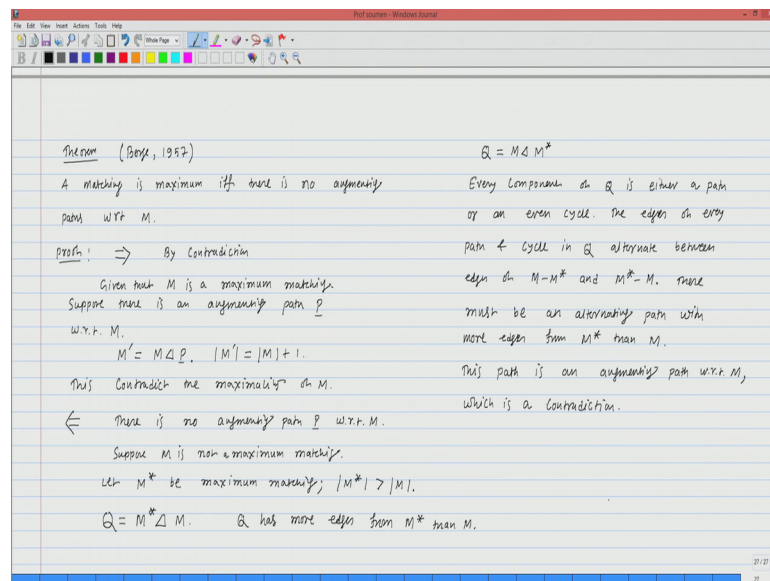 Prof soumen - Windows Journal
File Edit View Insert Actions Tools Help
Whole Page
B I
Theorem (Berge, 1957)
A matching is maximum iff there is no augmenting
paths wrt M.
proof: ⇒ By Contradiction
Given that M is a maximum matching.
Suppose there is an augmenting path P
w.r.t. M.
M' = M Δ P. |M'| = |M| + 1.
This Contradict the maximality of M.
⇐ There is no augmenting path P w.r.t. M.
Suppose M is not a maximum matching.
Let M* be maximum matching; |M*| > |M|.
Q = M* Δ M. Q has more edges from M* than M.
Q = M Δ M*
Every Component of Q is either a path
or an even cycle. The edges of every
path & cycle in Q alternate between
edges of M-M* and M*-M. There
must be an alternating path with
more edges from M* than M.
This path is an augmenting path w.r.t. M,
which is a Contradiction.
27 / 27
27